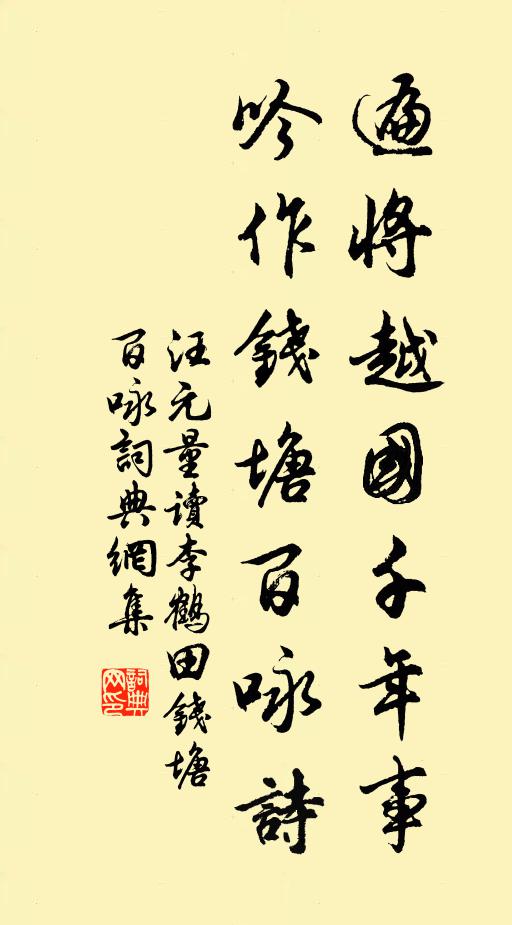 遍將越國千年事
吟作錢塘百咏詩
汪元量讀李鶴田錢塘
百咏詞典網集
詞典
网印